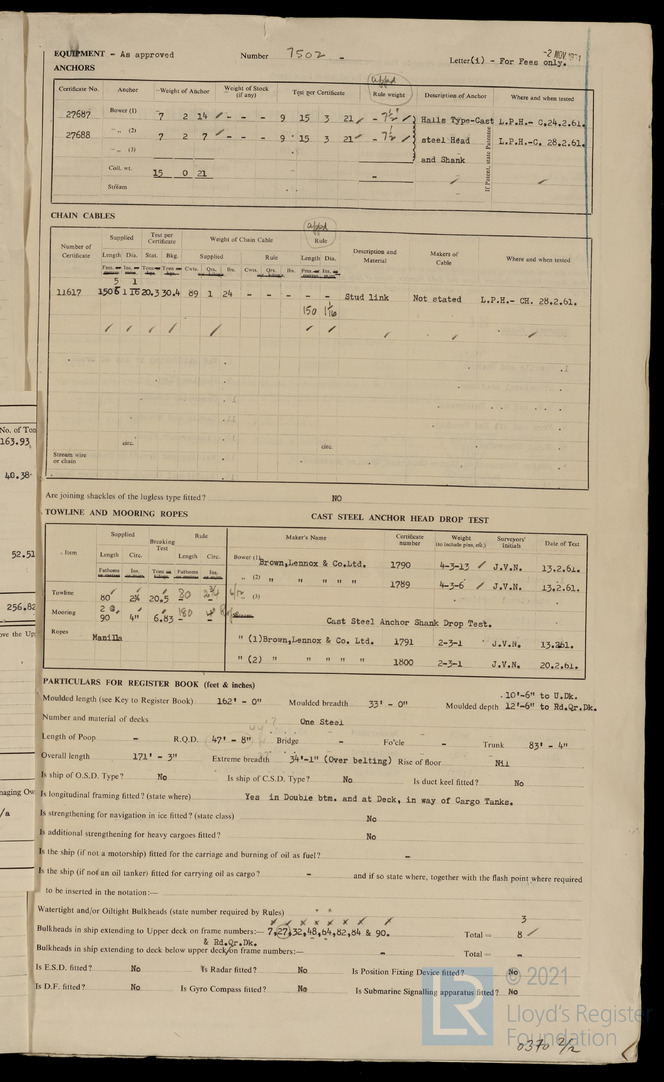 EQUIPMENT - As approved Number 7502 - Letter(i) - For Fees only.
ANCHORS
Certificate No. Anchor Weight of Anchor Weight of Stock (if any) Test per Certificate appd Rule weight Description of Anchor Where and when tested
27687 Bower (1) 7 2 14 - - - 9 15 3 21 - 7½ Halls Type-Cast L.P.H.- C.24.2.61.
27688 " „ (2) 7 2 7 - - - 9 15 3 21 - 7½ steel Head L.P.H.-C. 28.2.61.
" „ (3) and Shank
If Patent, state Patentee
Coll. wt. 15 0 21 -
Stream
CHAIN CABLES
Number of Certificate Supplied Test per Certificate Weight of Chain Cable appd Rule Description and Material Makers of Cable Where and when tested
Length Dia. Stat. Bkg. Supplied Rule Length Dia.
Cwts. Qrs. lbs. Cwts. Qrs. lbs.
11617 20.3 30.4 89 1 24 - - - - - Stud link Not stated L.P.H.- CH. 28.2.61.
150 1 1/16
circ. circ.
Stream wire or chain
Are joining shackles of the lugless type fitted? NO
TOWLINE AND MOORING ROPES CAST STEEL ANCHOR HEAD DROP TEST
Item Supplied Breaking Test Rule Maker's Name Certificate number Weight (to include pins, etc.) Surveyors' Initials Date of Test
Length Circ. Length Circ.
Fathoms Ins. Tons Fathoms Ins.
Bower (1) Brown,Lennox & Co.Ltd. 1790 4-3-13 J.V.N. 13.2.61.
„ (2) " " " " " 1789 4-3-6 J.V.N. 13.2.61.
Towline 80 2¾ 20.5 80 2¾ „ (3)
Mooring 2 @, 90 4" 6.83 180
Cast Steel Anchor Shank Drop Test.
Ropes Manilla " (1)Brown,Lennox & Co. Ltd. 1791 2-3-1 J.V.N. 13.261.
" (2) " " " " " 1800 2-3-1 J.V.N. 20.2.61.
PARTICULARS FOR REGISTER BOOK (feet & inches)
Moulded length (see Key to Register Book) 162' - 0" Moulded breadth 33' - 0" Moulded depth 10'-6" to U.Dk. 12'-6" to Rd.Qr.Dk.
Number and material of decks One Steel
Length of Poop - R.Q.D. 47' - 8" Bridge - Fo'cle - Trunk 83' - 4"
Overall length 171' - 3" Extreme breadth 34'-1" (Over belting) Rise of floor Nil
Is ship of O.S.D. Type? No Is ship of C.S.D. Type? No Is duct keel fitted? No
Is longitudinal framing fitted? (state where) Yes in Double btm. and at Deck, in way of Cargo Tanks.
Is strengthening for navigation in ice fitted? (state class) No
Is additional strengthening for heavy cargoes fitted? No
Is the ship (if not a motorship) fitted for the carriage and burning of oil as fuel? -
Is the ship (if not an oil tanker) fitted for carrying oil as cargo? - and if so state where, together with the flash point where required
to be inserted in the notation:—
Watertight and/or Oiltight Bulkheads (state number required by Rules) 3
Bulkheads in ship extending to Upper deck on frame numbers:— 7,27,32,48,64,82,84 & 90. Total = 8
& Rd.Qr.Dk.
Bulkheads in ship extending to deck below upper deck on frame numbers:— - Total = -
Is E.S.D. fitted? No Is Radar fitted? No Is Position Fixing Device fitted? No
Is D.F. fitted? No Is Gyro Compass fitted? No Is Submarine Signalling apparatus fitted? No
No. of Ton
163.93
40.38
52.51
256.82
ove the Up
naging Ow
/a
LR
© 2021
Lloyd's Register
Foundation
0370 2/2